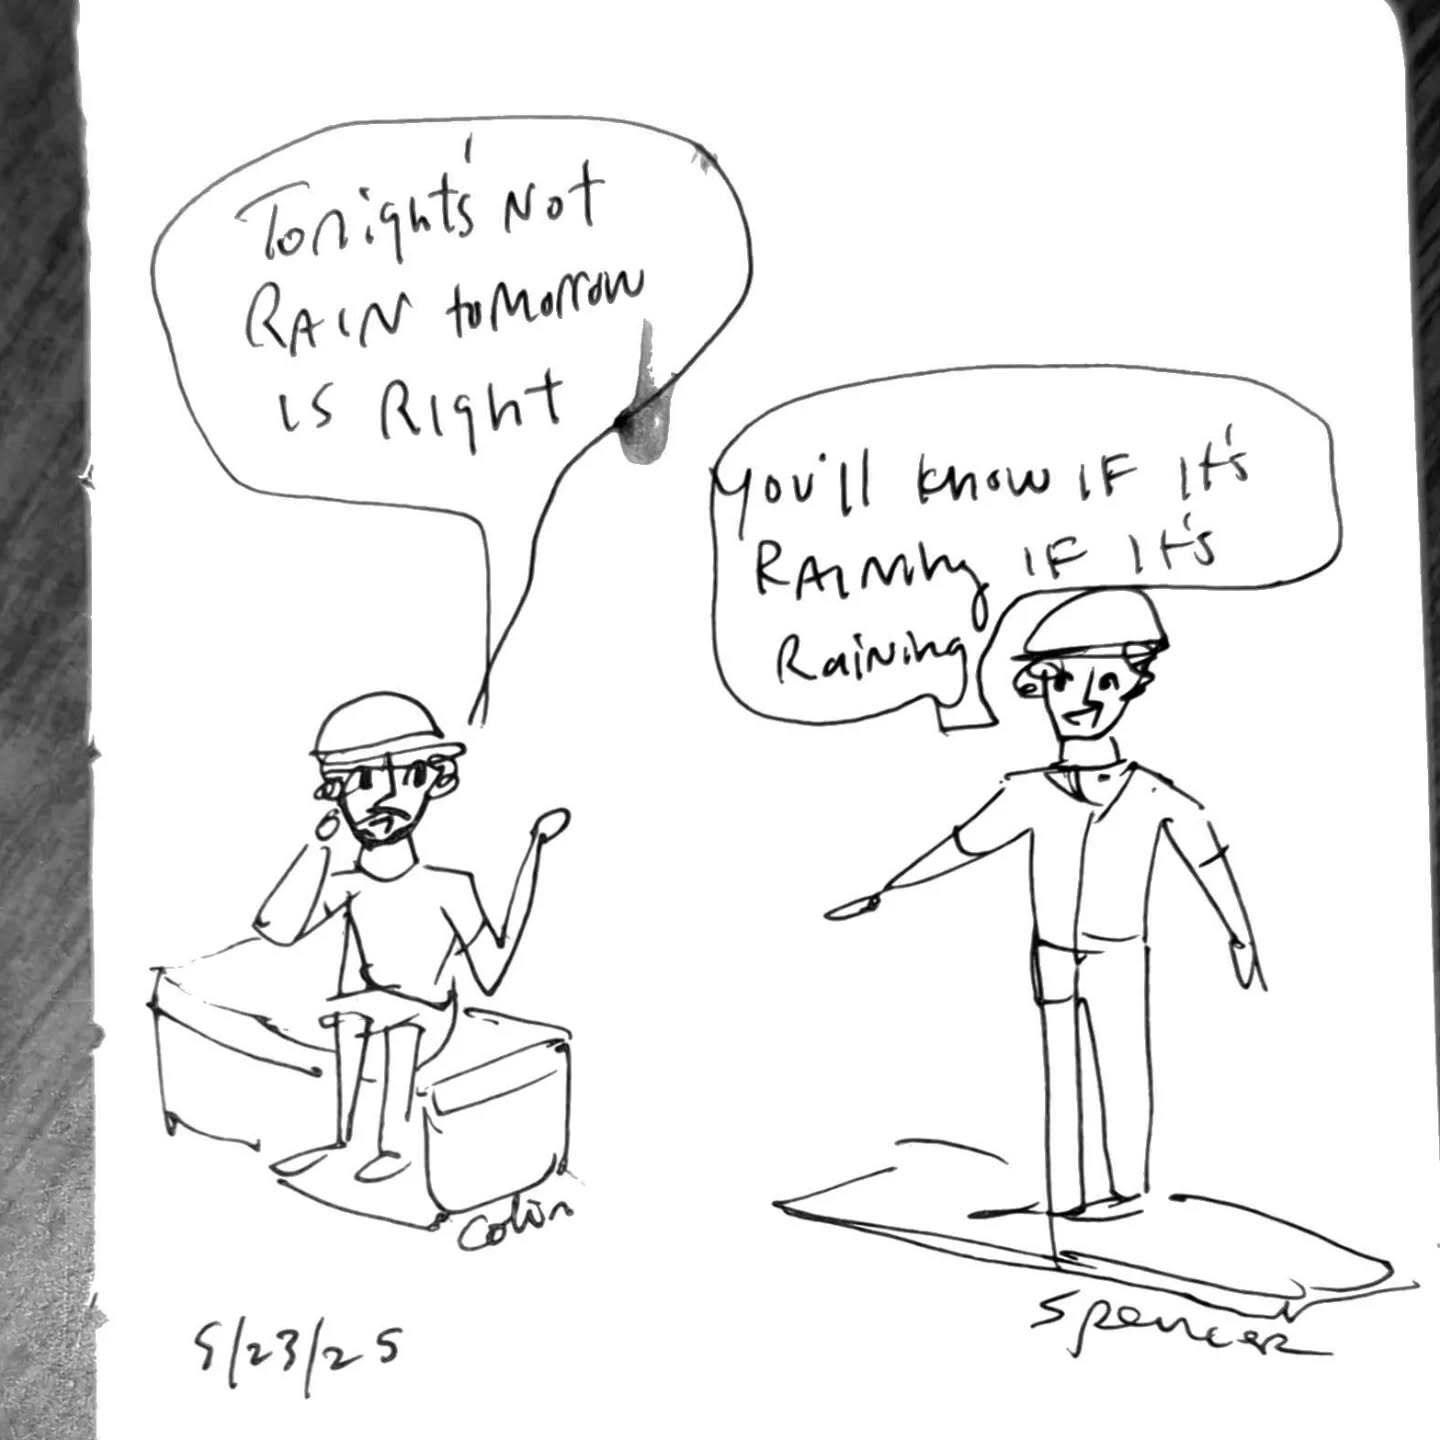 Tonight's Not
RAIN tomorrow
is Right
You'll know IF It's
RAINing IF It's
Raining
Colin
Spencer
5/23/25